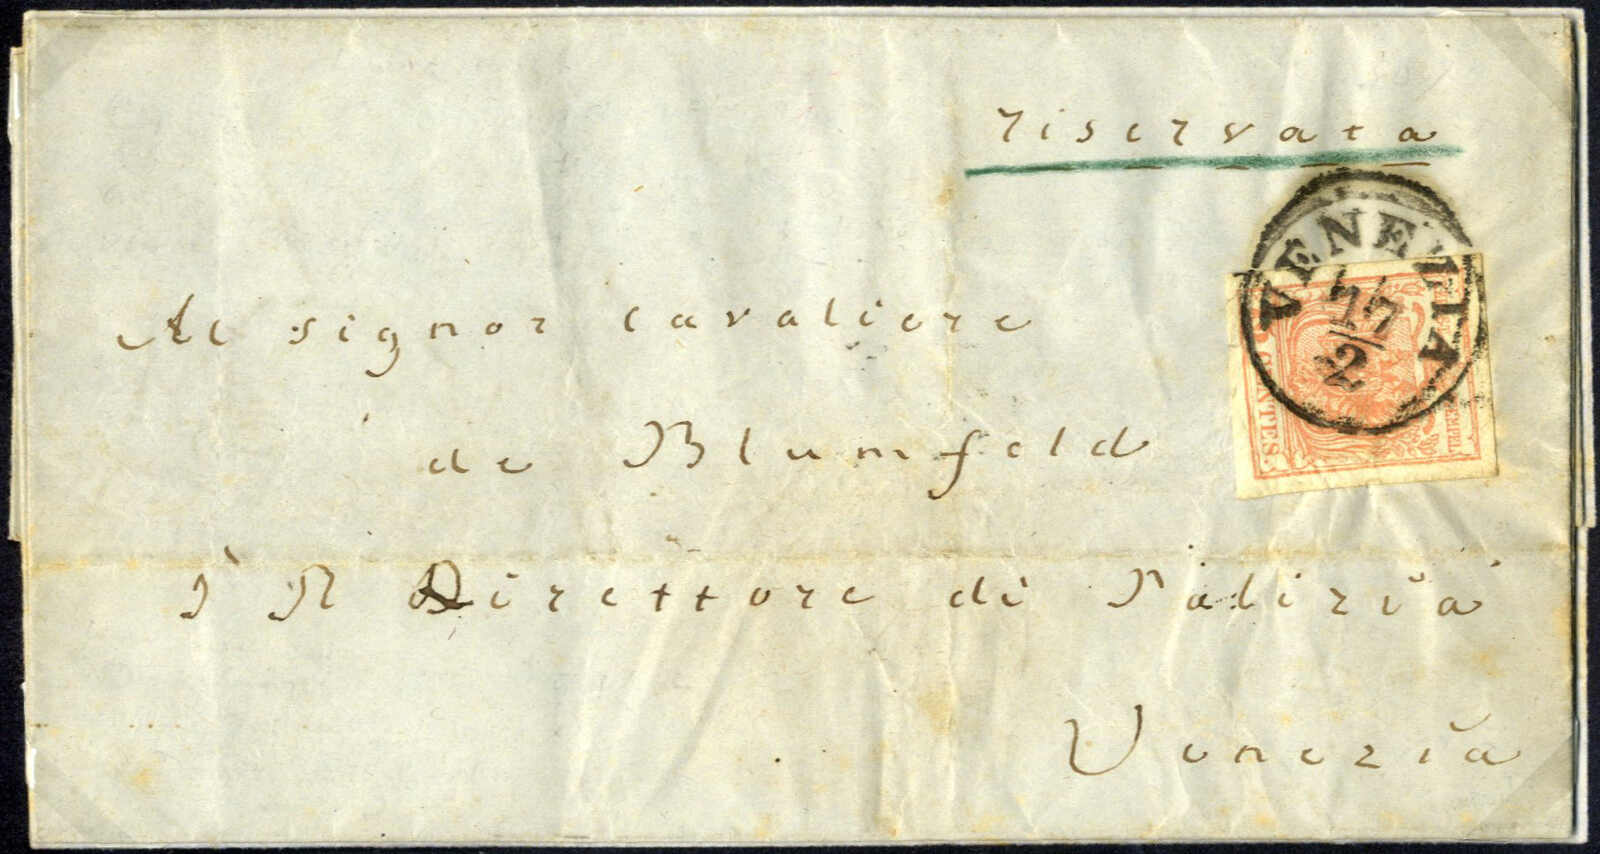 riservata
VENEZIA
17
2
CENTES.
STEMPEL
Al signor cavaliere
de Blumfeld
I R Direttore di Polizia
Venezia